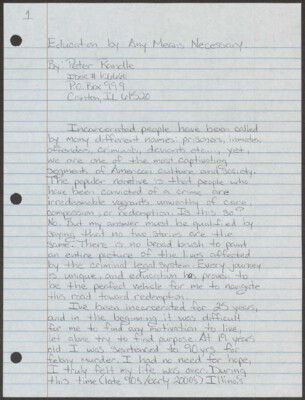 1
Education by Any Means Necessary
By: Peter Randle
Doc # K66611
P.O. Box 999
Canton, IL 61520
Incarcerated people have been called
by many different names: prisoners, inmate,
offender, criminals, deviants etc..., yet,
we are one of the most captivating
segments of American culture and society.
The popular narrative is that people who
have been convicted of a crime are
irredeemable vagrants unworthy of care,
compassion, or redemption. Is this so?
No. But my answer must be qualified by
saying that no two stories are the
same. There is no broad brush to paint
an entire picture of the lives affected
by the criminal legal system. Every journey
is unique, and education has proven to
be the perfect vehicle for me to navigate
this road toward redemption.
I've been incarcerated for 25 years,
and in the beginning it was difficult
for me to find any motivation to live,
let alone try to find purpose. At 19 years
old I was sentenced to 90 yrs for
felony murder. I had no need for hope;
I truly felt my life was over. During
this time (late 90s/early 2000s) Illinois